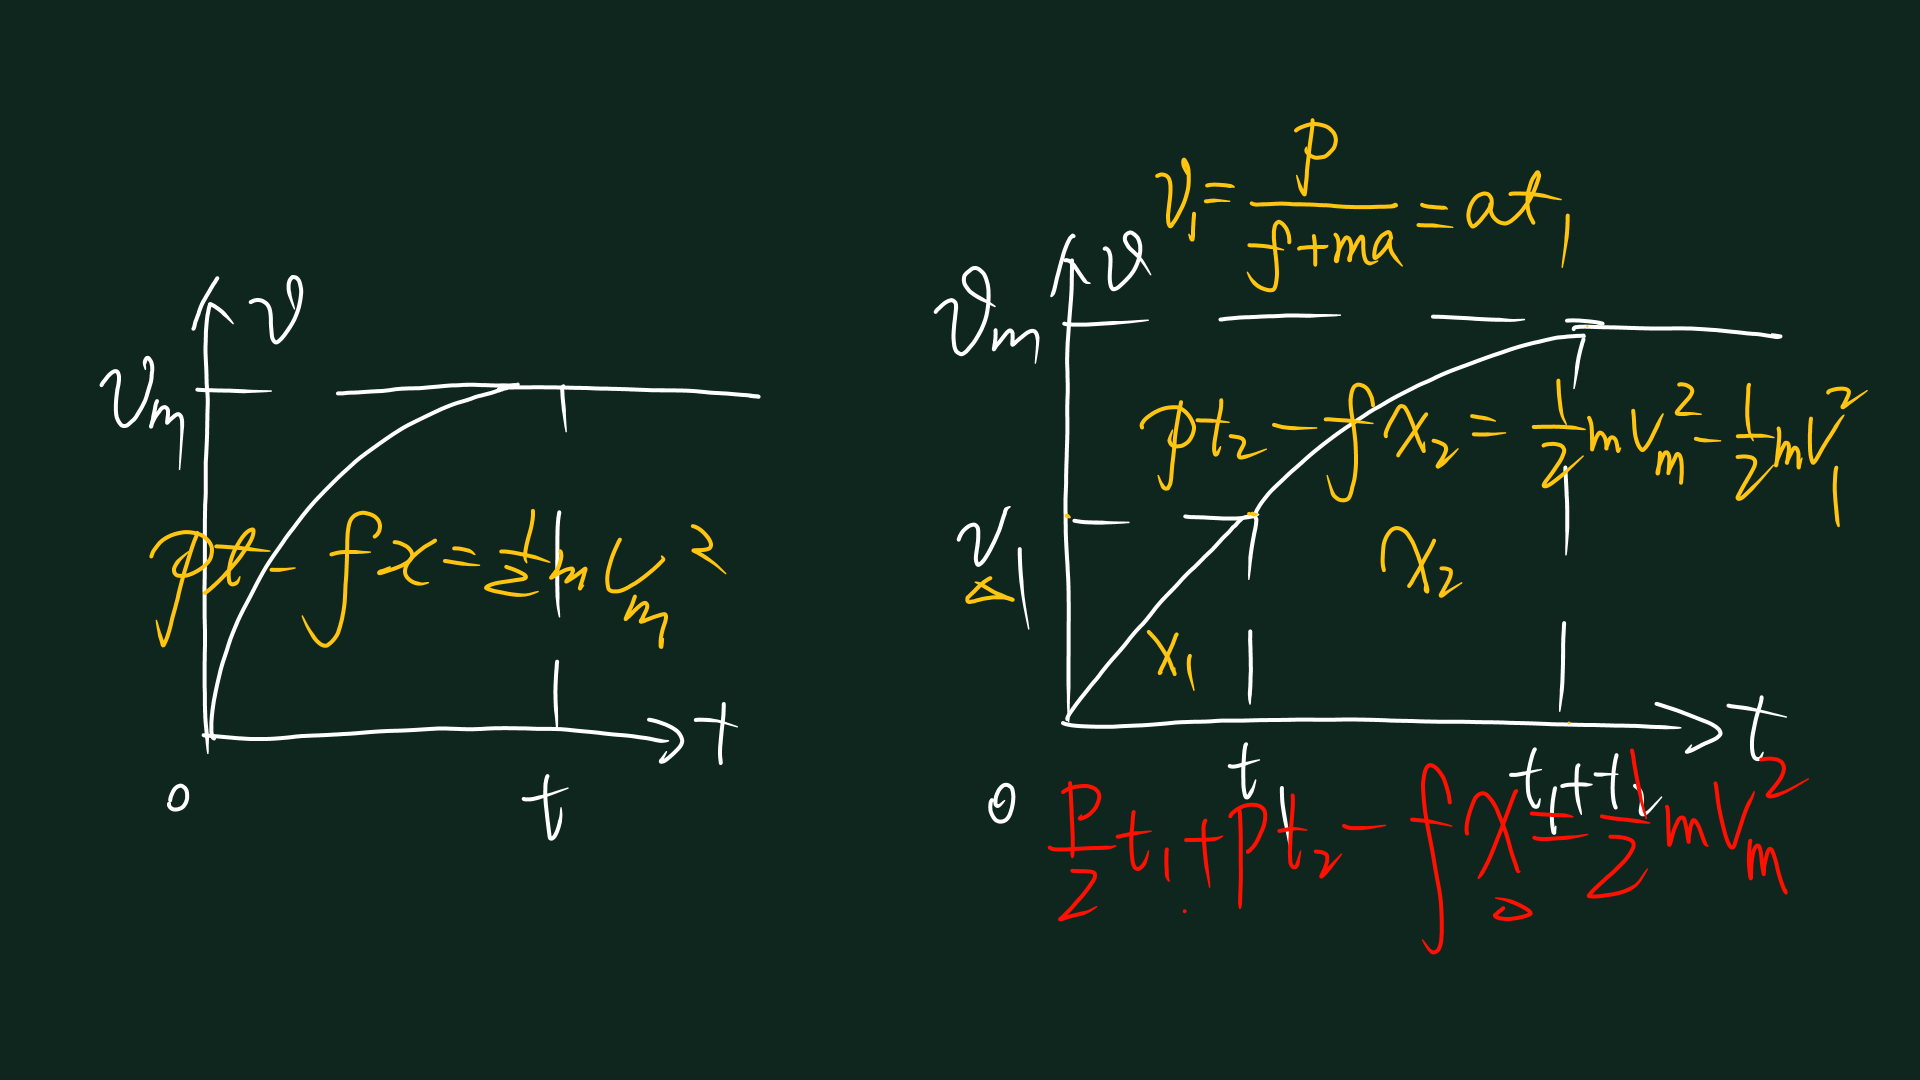 v
v_m
pt - fx = \frac{1}{2} m v_m^2
t
0
t
v_1 = \frac{P}{f+ma} = at_1
v
v_m
pt_2 - fx_2 = \frac{1}{2} m v_m^2 - \frac{1}{2} m v_1^2
v_1
x_2
x_1
t
0
t_1
t_1+t_2
\frac{P}{2} t_1 + pt_2 - fx = \frac{1}{2} m v_m^2